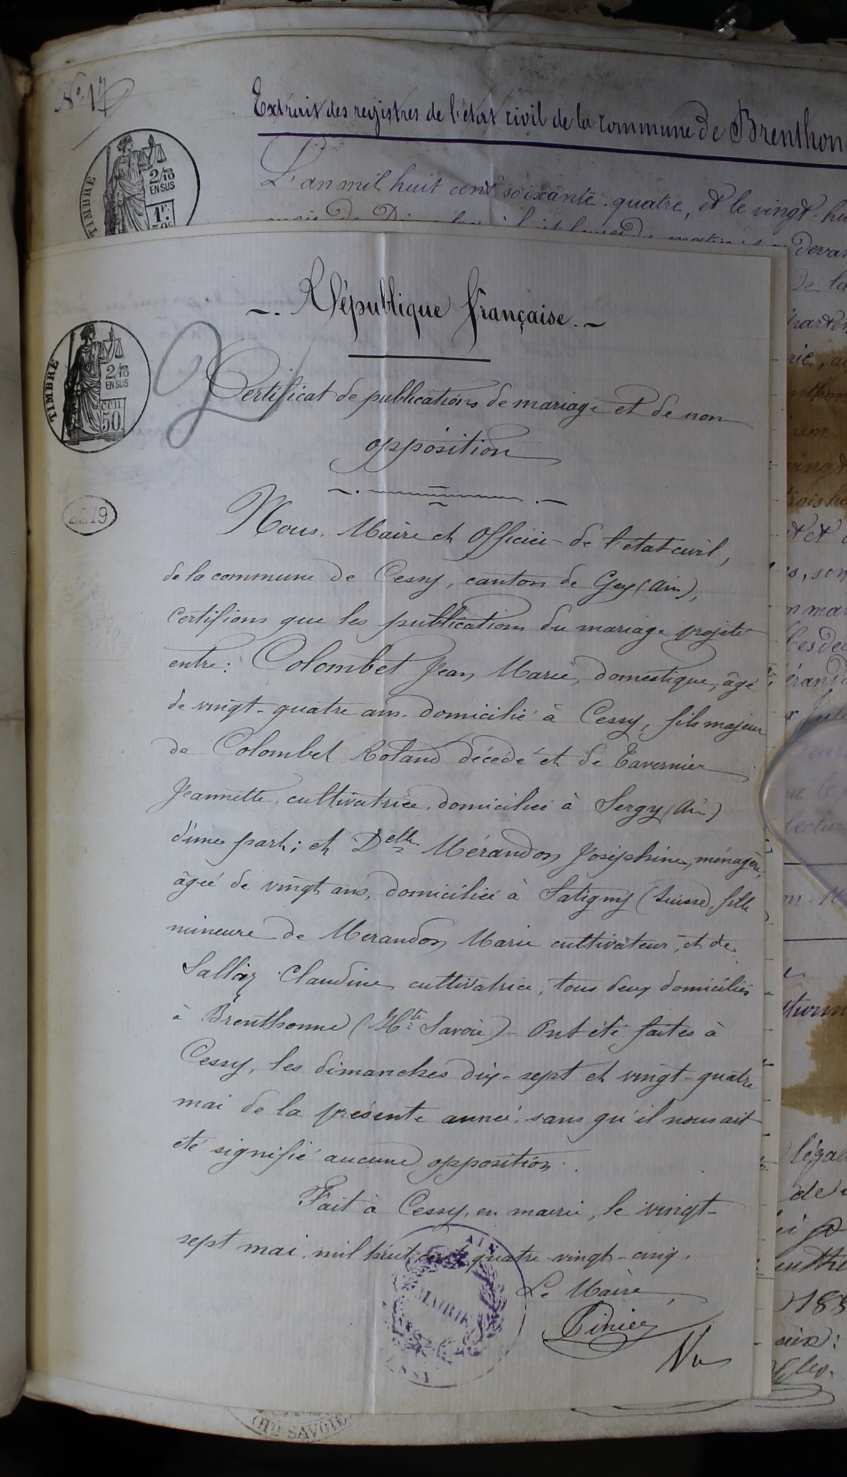 N° 17
Extrait des registres de l'état civil de la commune de Brenthon
L'an mil huit cent soixante-quatre, et le vingt-hu
TIMBRE
2/10
EN SUS
1 F.
République française.
TIMBRE
2/10
EN SUS
CEN
50
2
Certificat de publications de mariage et de non
opposition
Nous, Maire et Officier de l'état civil,
de la commune de Cessy, canton de Gex (Ain),
certifions que les publications du mariage projeté
entre: Colombet Jean Marie, domestique, âgé
de vingt-quatre ans domicilié à Cessy, fils majeur
de Colombet Roland décédé et de Tavernier
Jeannette, cultivatrice, domiciliée à Sergy (Ain)
d'une part; et Delle Mérandon Joséphine, ménagère,
âgée de vingt ans, domiciliée à Satigny (Suisse), fille
mineure de Merandon Marie cultivateur, et de
Sallaz Claudine, cultivatrice, tous deux domiciliés
à Brenthonne (Hte Savoie) - Ont été faites à
Cessy, les dimanches dix-sept et vingt-quatre
mai de la présente année sans qu'il nous ait
été signifié aucune opposition.
Fait à Cessy, en mairie, le vingt-
sept mai, mil huit cent quatre-vingt-cinq.
Le Maire,
AIN
MAIRIE
Vu
(HTE SAVOIE)